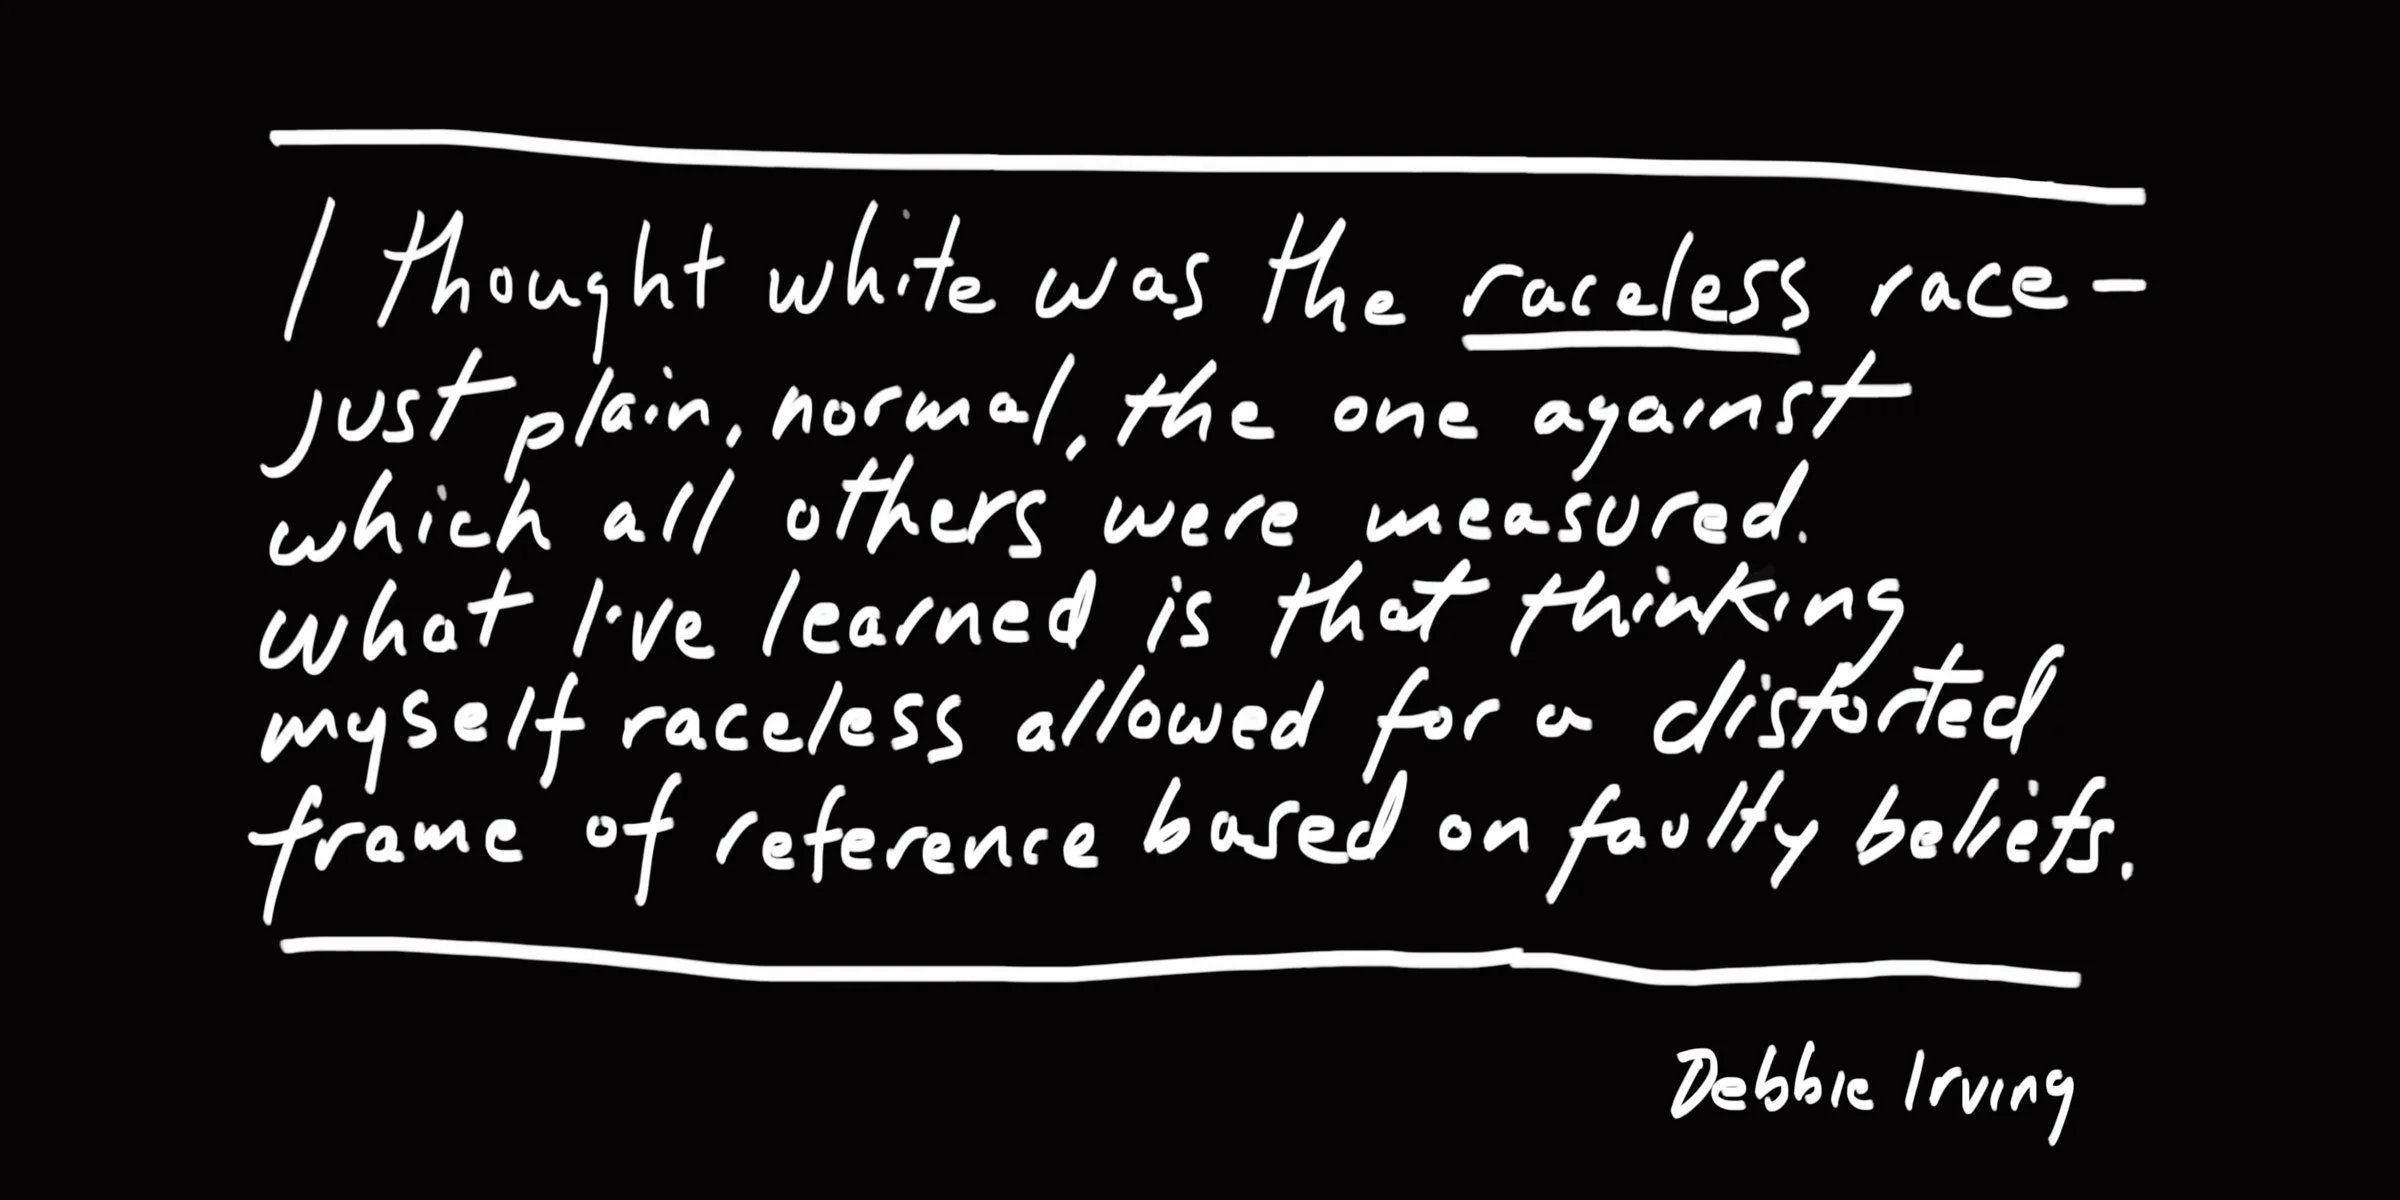 I thought white was the raceless race–
just plain, normal, the one against
which all others were measured.
What I've learned is that thinking
myself raceless allowed for a distorted
frame of reference based on faulty beliefs.
Debbie Irving